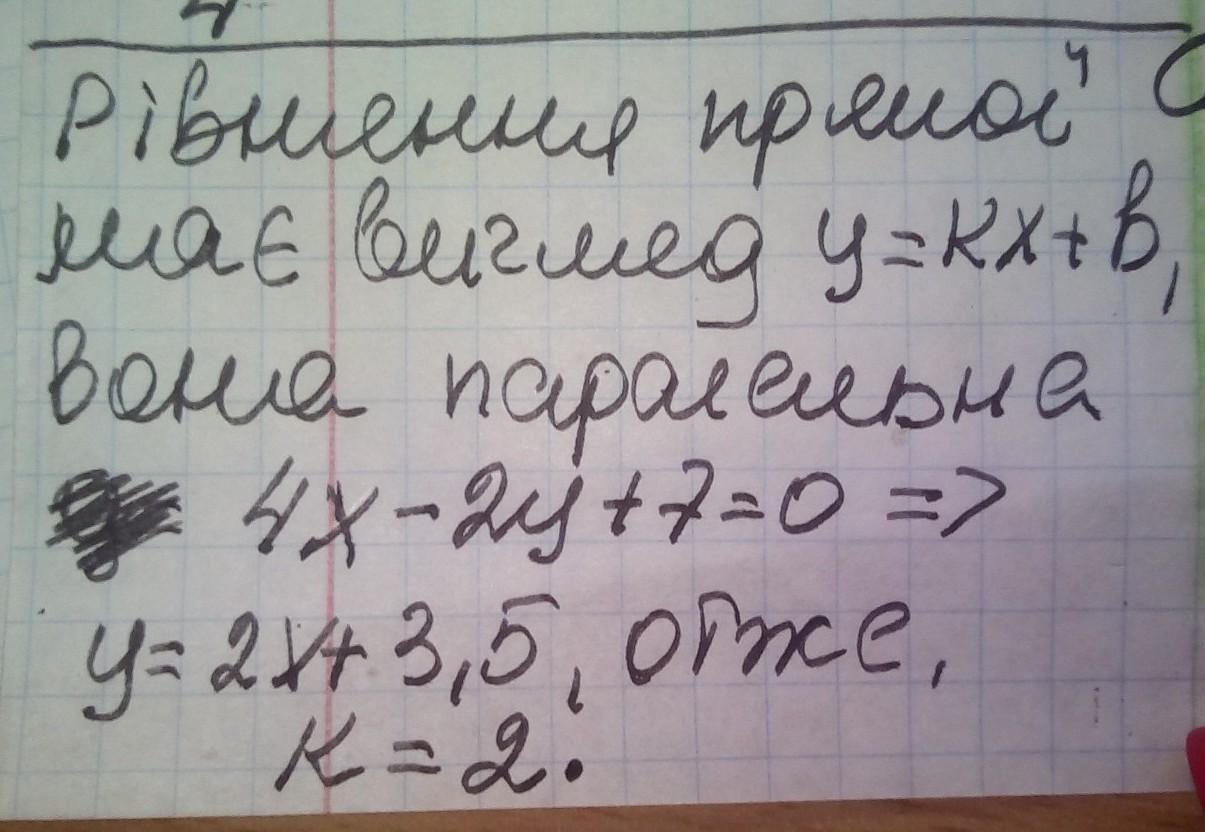 4
Рівняння прямої
має вигляд y=kx+b,
вона паралельна
4x-2y+7=0 =>
y=2x+3,5, отже,
k=2.